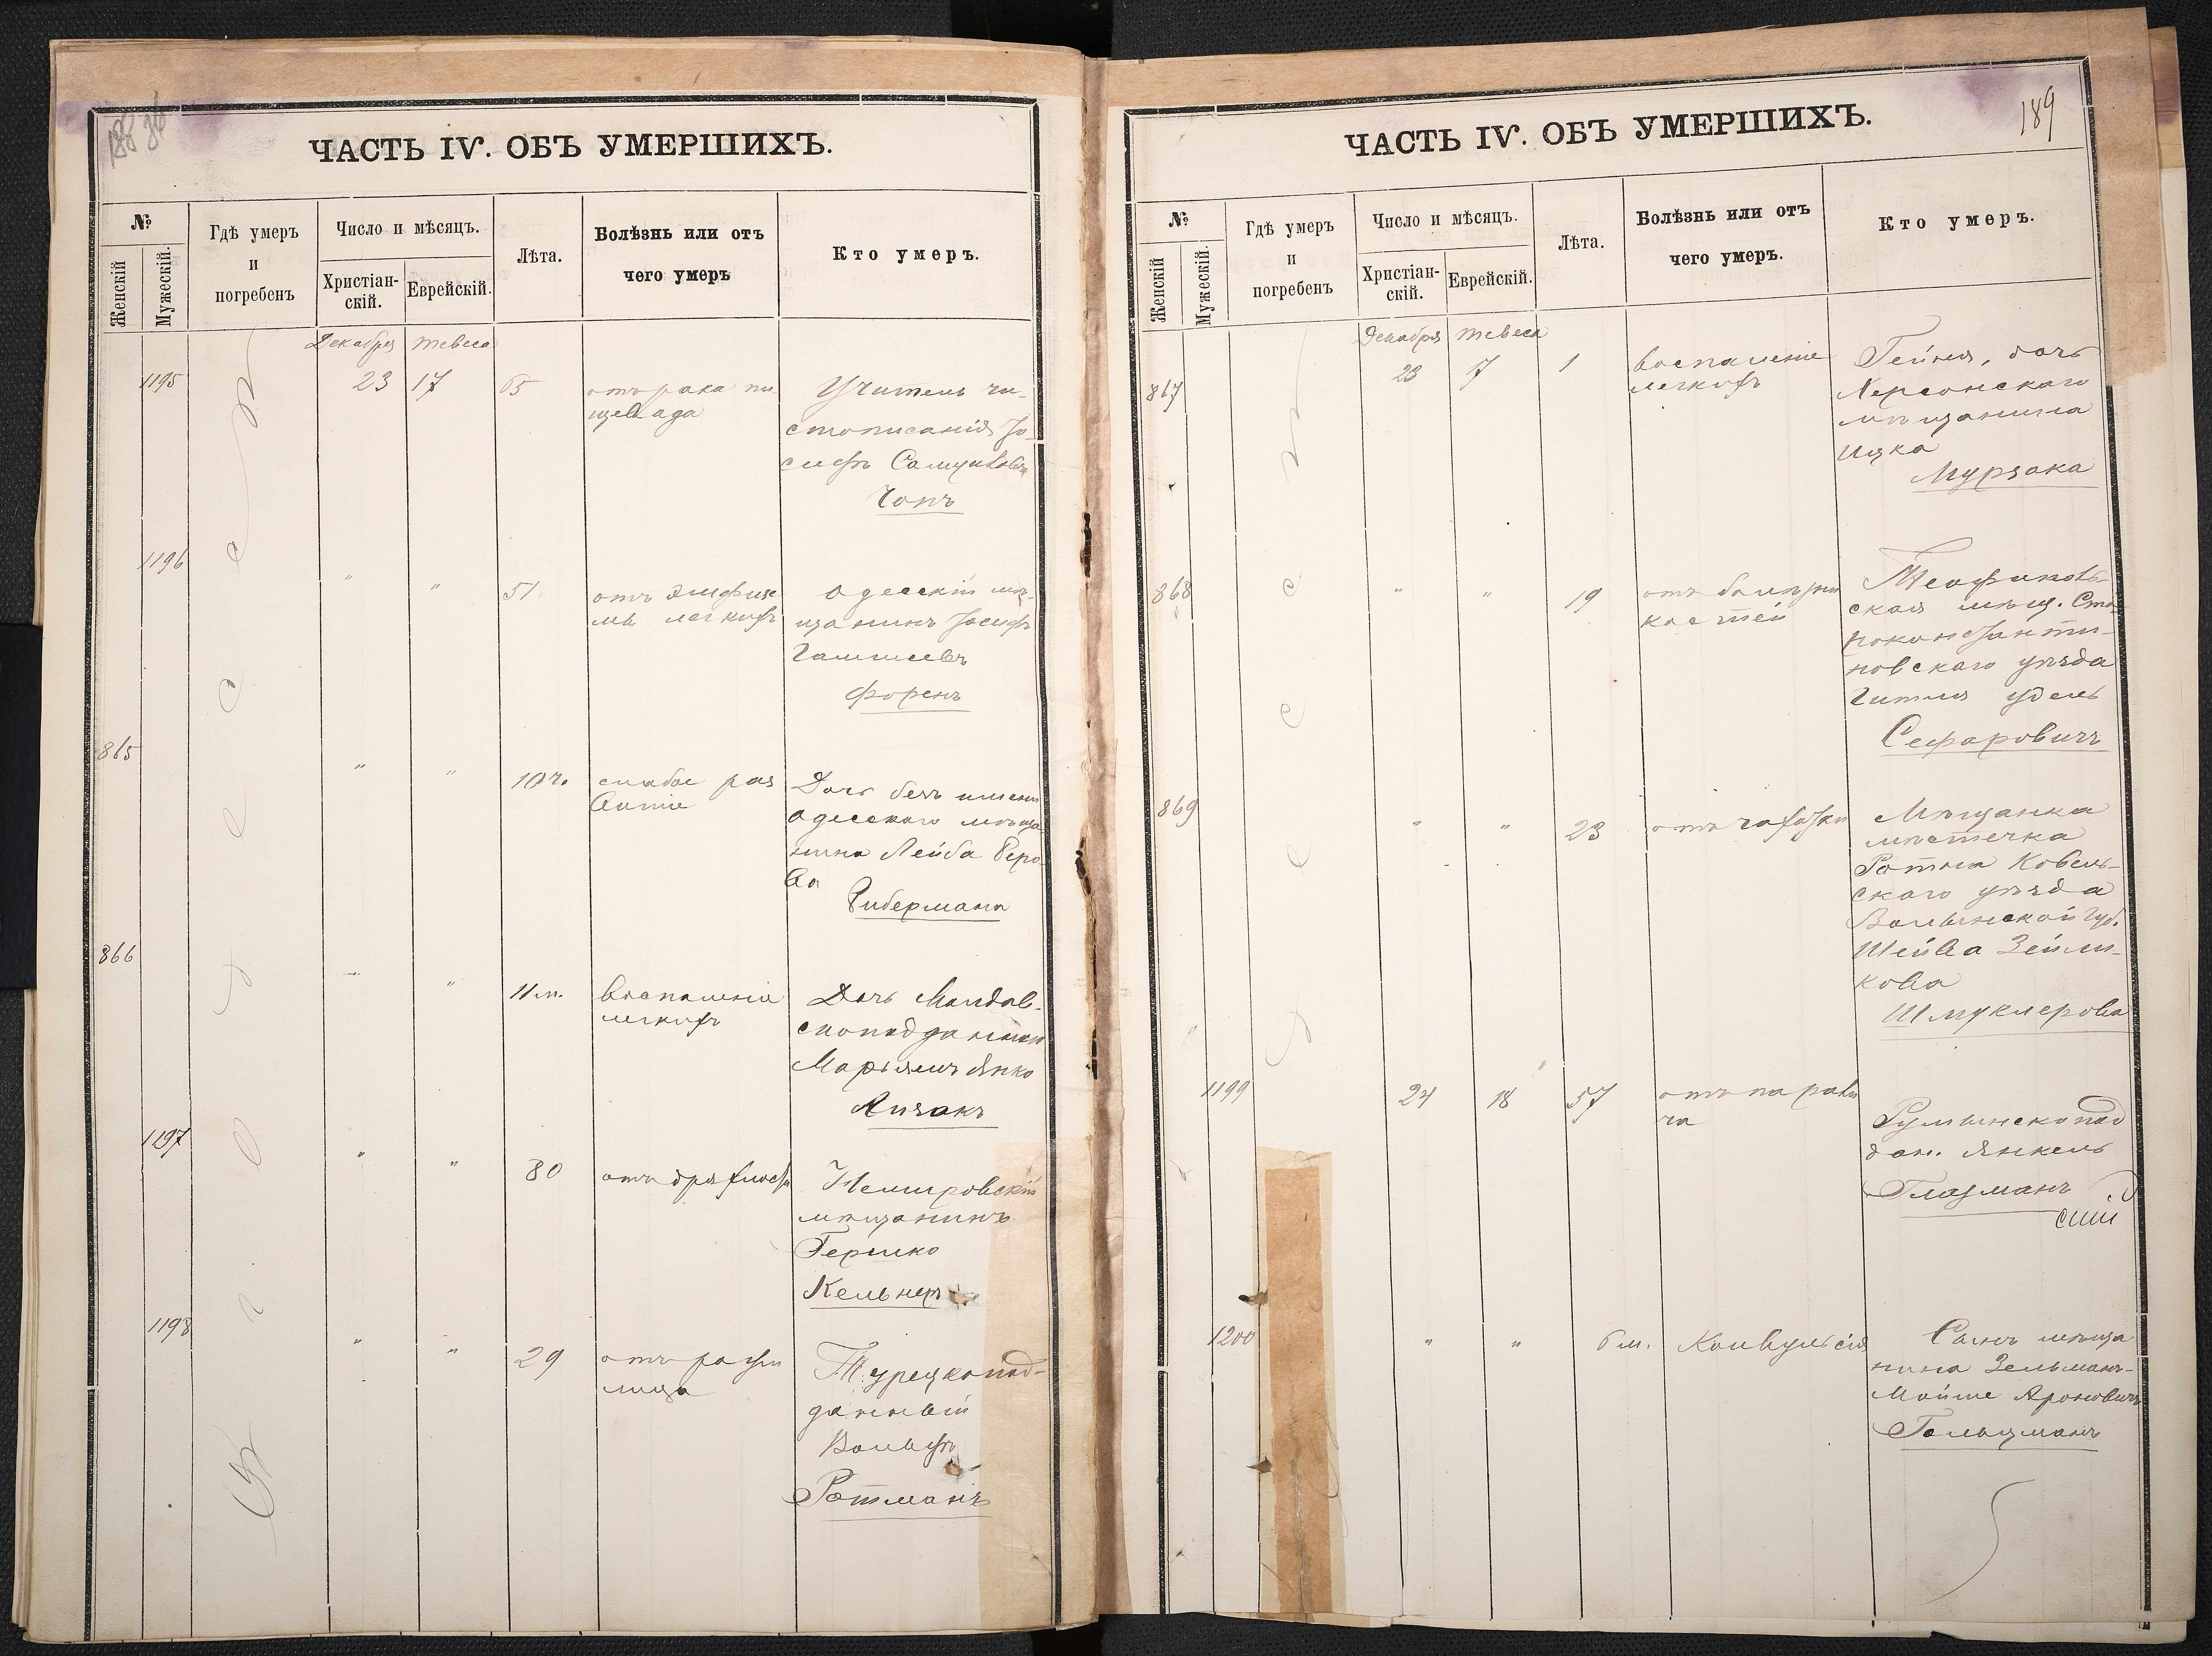 188
ЧАСТЬ IV. ОБЪ УМЕРШИХЪ.
№
Женскій
Мужескій.
Гдѣ умеръ
и
погребенъ
Число и мѣсяцъ.
Христіан-
скій.
Еврейскій.
Лѣта.
Болѣзнь или отъ
чего умеръ
Кто умеръ.
Декабря Тевеса
1195 23 17 65
отъ рака пи
щевада
Учитель чи-
стописанія Іо-
сифъ
Чопъ
1196 " " 51
отъ эмфизе
мы легкихъ
Одесскій мѣ-
щанинъ Іосифъ
Форенъ
865 " " 10 ч.
слабое раз
витіе
Дочь безъ имени
Одесскаго мѣща
нина Лейба Беро
ва
Либермана
866 " " 11 м.
Воспаленіе
легкихъ
Дочь Молдав-
скоподданнаго
Марьямъ Янко
1197 " " 80
отъ дряхлости
Немировскій
мѣщанинъ
Гершко
Кельнеръ
1198 " " 29
отъ рожи
лица
Турецкопод-
данный
Вольфъ
Ротманъ
Одесса
189
ЧАСТЬ IV. ОБЪ УМЕРШИХЪ.
№
Женскій
Мужескій.
Гдѣ умеръ
и
погребенъ
Число и мѣсяцъ.
Христіан-
скій.
Еврейскій.
Лѣта.
Болѣзнь или отъ
чего умеръ.
Кто умеръ.
Декабря Тевеса
867 23 7 1
Воспаленіе
легкихъ
Гейня, дочь
Херсонскаго
мѣщанина
Ицка
Мурзака
868 " " 19
костей
Теофиполь-
ская мѣщ. Ста-
роконстанти-
новскаго уѣзда
Гитля Удель
Сефаровичъ
869 " " 23
отъ чахотки
Мѣщанка
мѣстечка
Ратна Ковель-
скаго уѣзда
Волынской губ.
Шейва Зейли-
кова
Шмуклерова
1199 24 18 57
отъ парали
ча
Румынскопод
дан. Янкель
Глазманъ
1200 " " 6 м.
Конвульсія
Сынъ мѣща
нина Зельманъ-
Мойше Ароновичъ
Гольцманъ